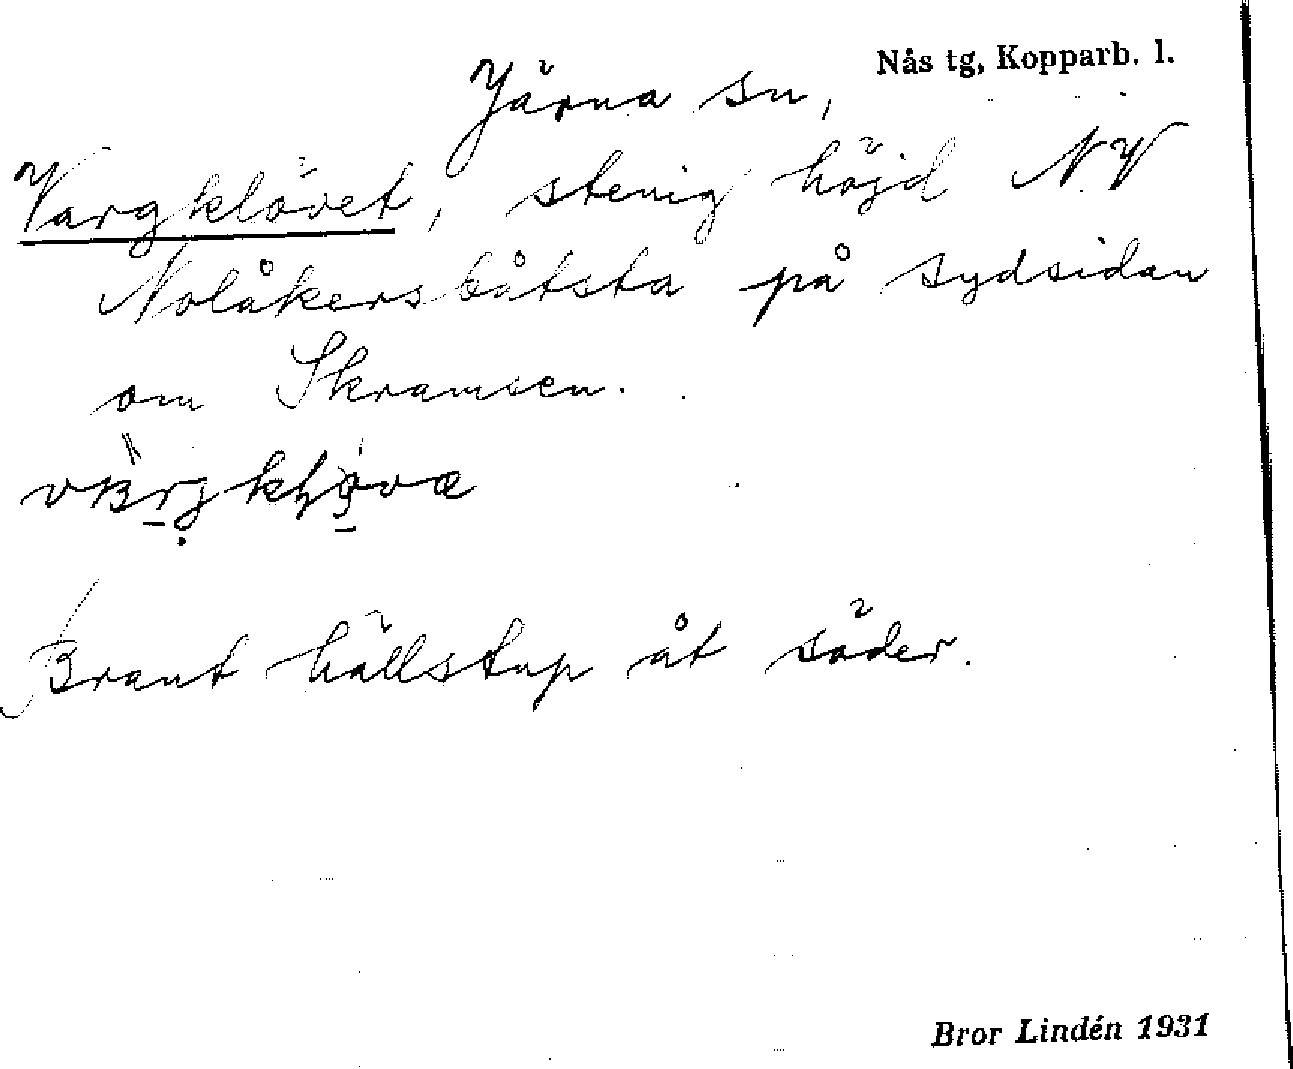 Nås tg, Kopparb. l.
Järna sn,
Vargklövet, stenig höjd N.V
Nolåkersbåtsta på sydsidan
om Skramsen.
Brant hällstup åt söder.
Bror Lindén 1931